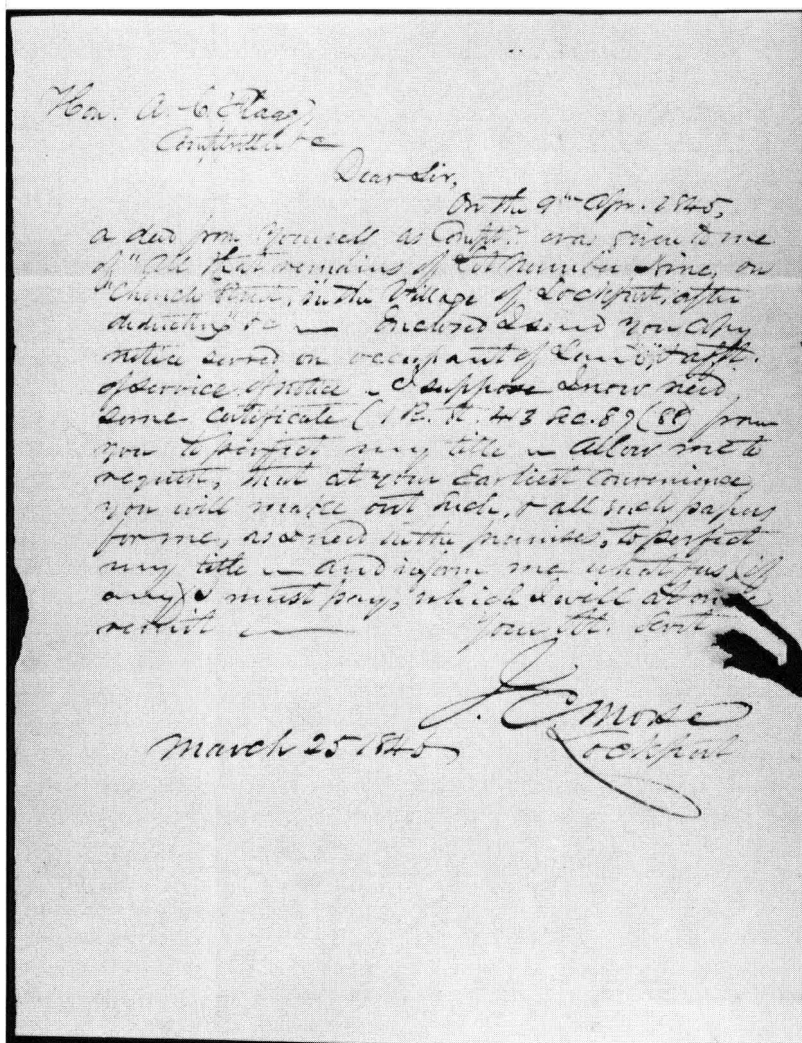 Hon. A. C. Flagg,
Comptroller &c
Dear Sir,
On the 9th Apr. 1845,
a deed from yourself as Compt. was given to me
of "All that remains of Lot Number Nine, on
"Church Street," in the Village of Lockport, after
deducting" &c — Enclosed I send you
notice served on occupant of Land & afft.
of service of notice — I suppose I now need
some certificate (1 R. St. 413 Sec. 89 (88) from
you to perfect my title — Allow me to
request, that at your Earliest Convenience,
you will make out such, & all such papers
for me, as I need in the premises, to perfect
my title — and inform me what fees (if
any) I must pay, which I will at once
remit — Your Obt. Servt
J. C. Morse
Lockport
March 25 1846